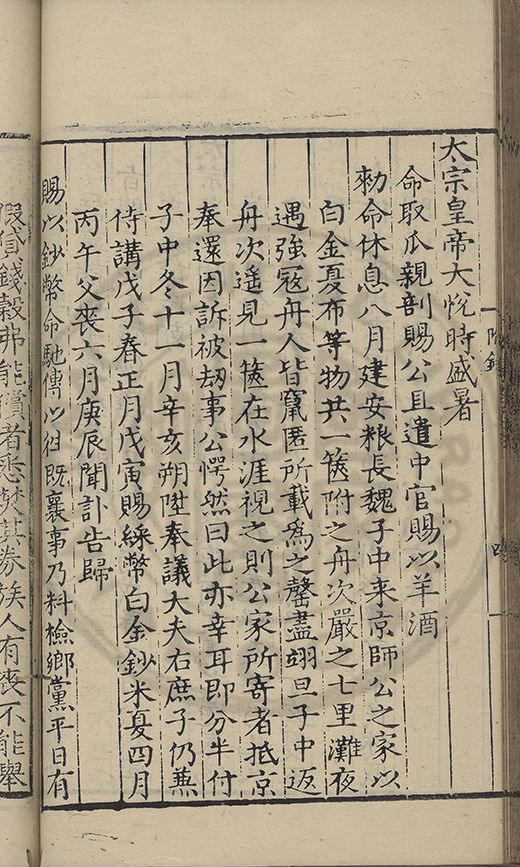 太宗皇帝大悅時盛暑
命取瓜親剖賜公且遣中官賜以羊酒
勑命休息八月建安粮長魏子中来京師公之家以
白金夏布等物共一篋附之舟次嚴之七里灘夜
遇強寇舟人皆竄匿所載爲之罄盡翊旦子中返
舟次遥見一篋在水涯視之則公家所寄者抵京
奉還因訴被刼事公愕然曰此亦幸耳即分半付
子中冬十一月辛亥朔陞奉議大夫右庶子仍兼
侍講戊子春正月戊寅賜綵幣白金鈔米夏四月
丙午父喪六月庚辰聞訃告歸
賜以鈔幣命馳傳以往既襄事乃料檢鄉黨平日有
假貸錢穀弗能償者悉焚其券族人有喪不能舉
附錄
四